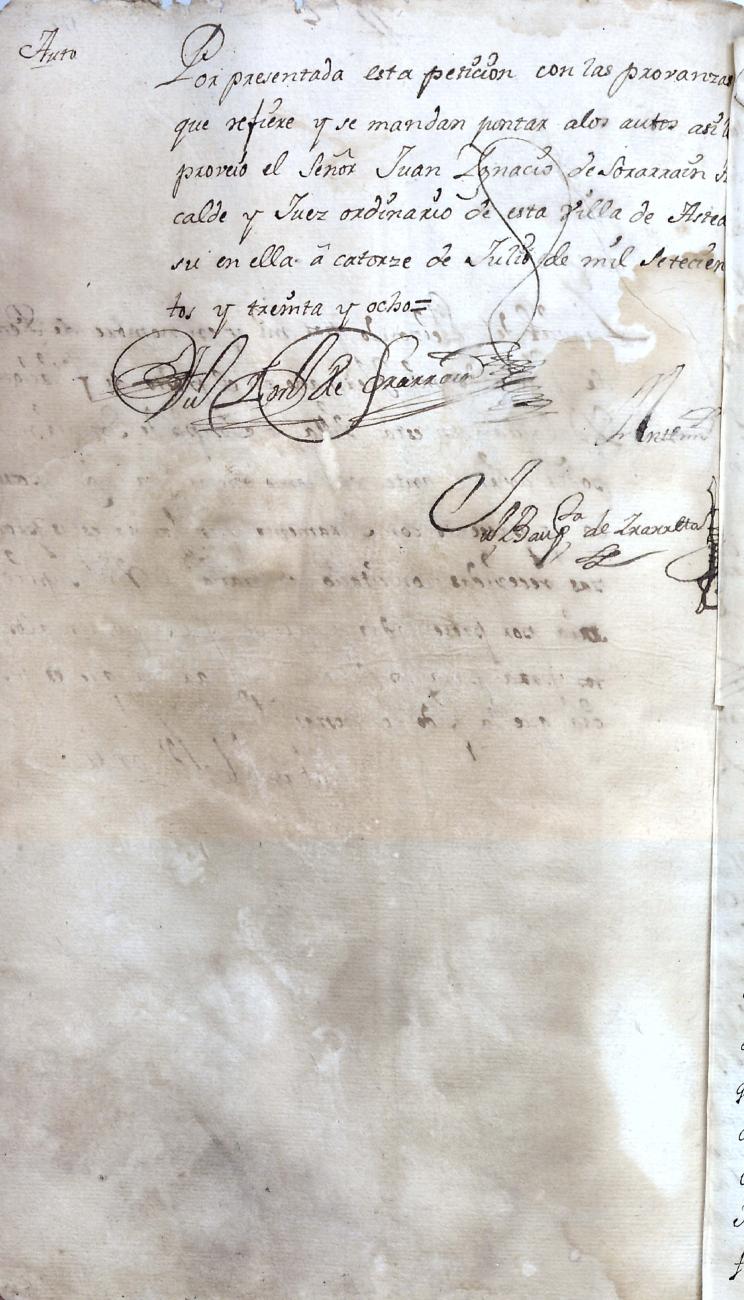 Auto
Por presentada esta petiçion con las provanzas
que refiere y se mandan juntar a los autos asi lo
proveio el Señor Juan Ignacio de Sorarrain Al
calde y Juez ordinario de esta villa de Astea
su en ella â catorze de Julio de mil setecien
tos y treinta y ocho=
Ju Ign de Sorarrain
Ante mi
Ju Baupta de Yrarreta